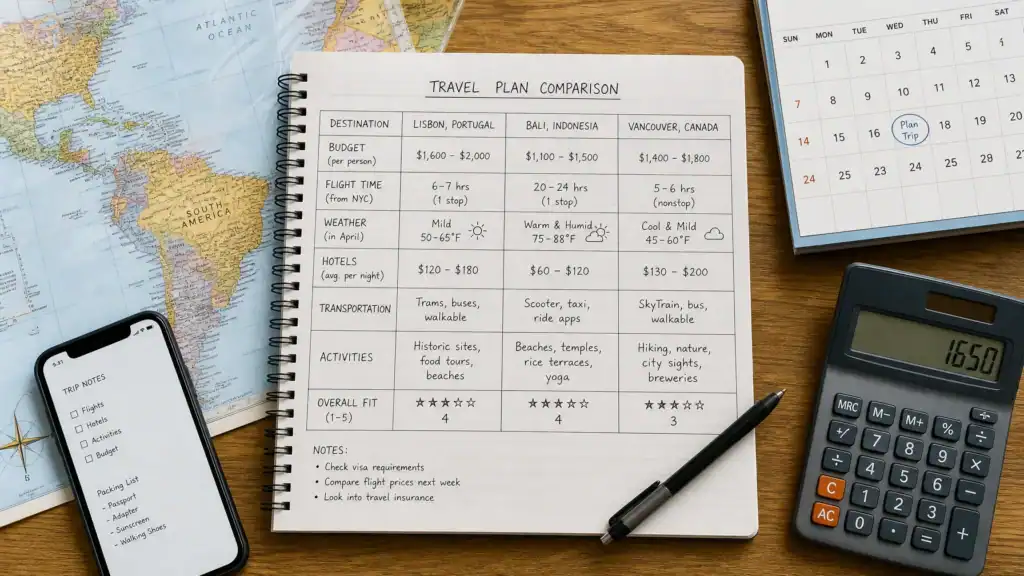 ATLANTIC
OCEAN
SOUTH
AMERICA
TRAVEL PLAN COMPARISON
DESTINATION LISBON, PORTUGAL BALI, INDONESIA VANCOUVER, CANADA
BUDGET
(per person) $1,600 – $2,000 $1,100 – $1,500 $1,400 – $1,800
FLIGHT TIME 6–7 hrs 20–24 hrs 5–6 hrs
(from NYC) (1 stop) (1 stop) (nonstop)
WEATHER Mild Warm & Humid Cool & Mild
(in April) 50–65°F 75–88°F 45–60°F
HOTELS
(avg. per night) $120 – $180 $60 – $120 $130 – $200
TRANSPORTATION Trams, buses, Scooter, taxi, SkyTrain, bus,
walkable ride apps walkable
Historic sites, Beaches, temples, Hiking, nature,
ACTIVITIES food tours, rice terraces, city sights,
beaches yoga breweries
OVERALL FIT ★★★★☆ ★★★★☆ ★★★☆☆
(1–5) 4 4 3
NOTES:
• Check visa requirements
• Compare flight prices next week
• Look into travel insurance
TRIP NOTES
☐ Flights
☐ Hotels
☐ Activities
☐ Budget
Packing List
- Passport
- Adapter
- Sunscreen
- Walking Shoes
SUN MON TUE WED THU FRI SAT
1 2 3 4 5
7 8 9 10 11 12 13
14 15 16 Plan Trip 18 19 20
24 25 23 24 25 28
1650
MRC M– M+ % ÷
+/ 7 8 9 ÷
÷ 4 5 6 × –
C 1 2 3
AC 0 · = +